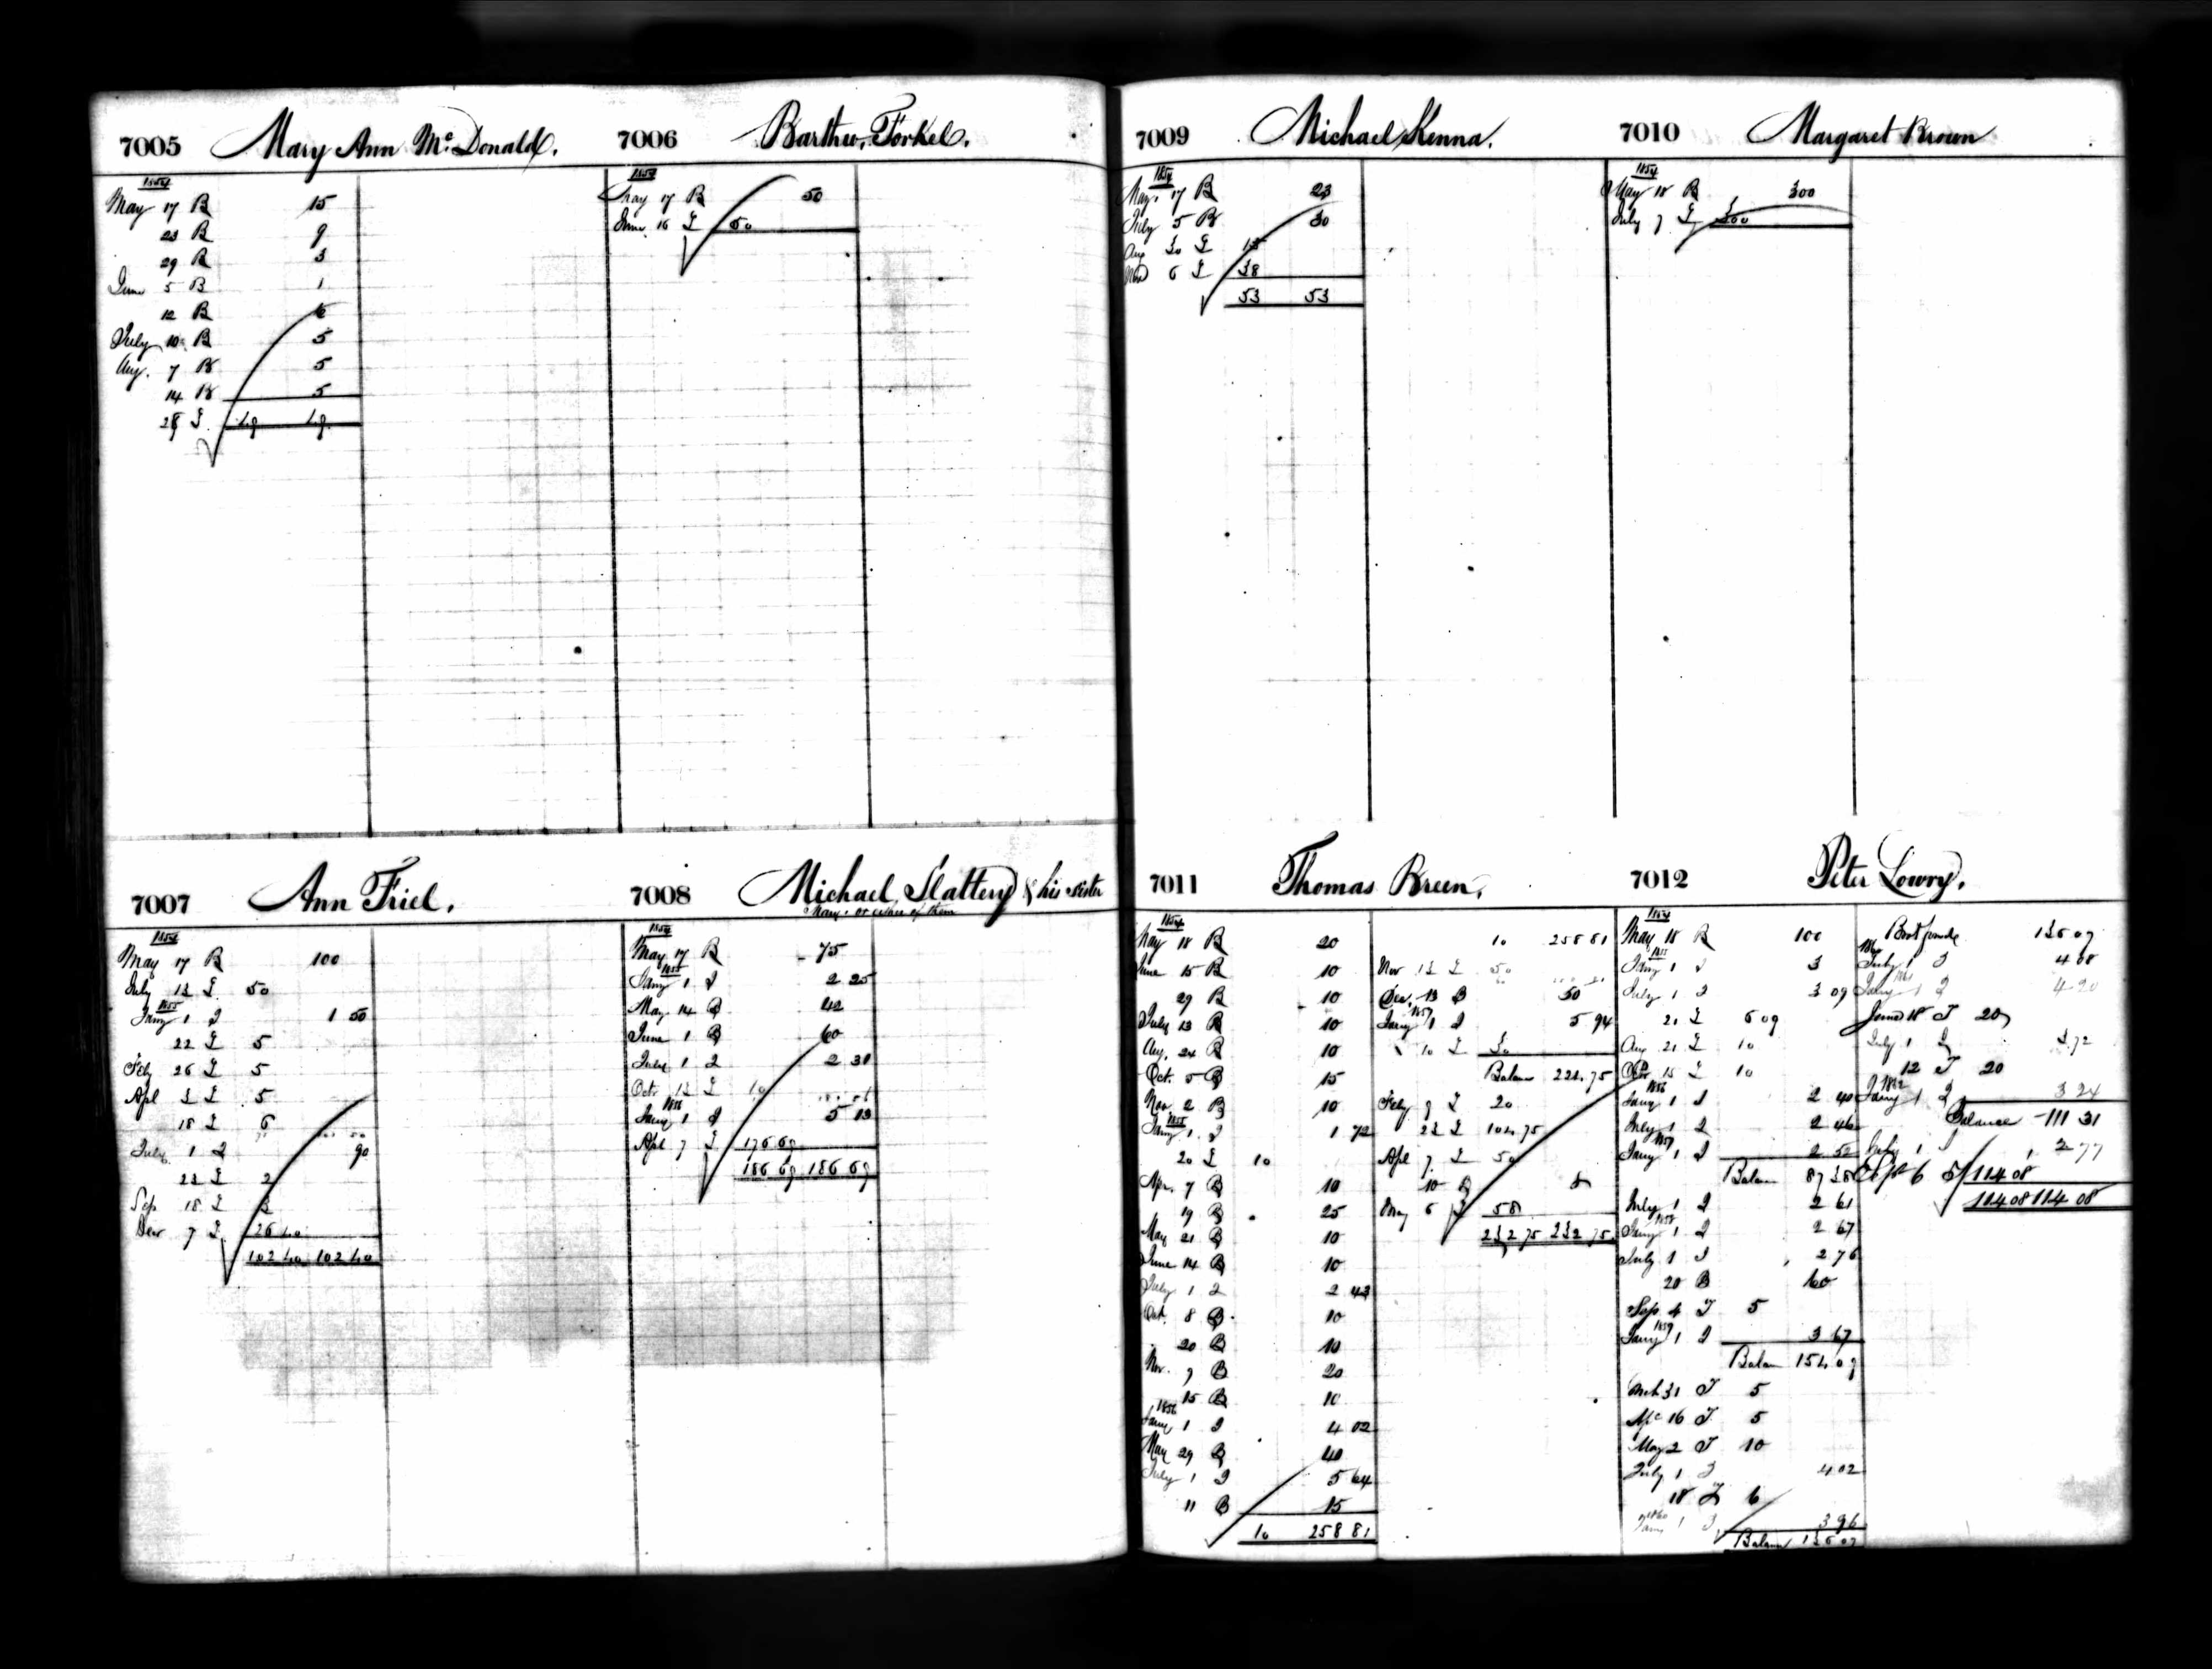 7005 Mary Ann McDonald.
1854
May 17 B 15
23 B 9
29 B 3
June 5 B 1
12 B 6
July 10 B 5
Aug. 7 B 5
14 B 5
28 £ 49 49
7006 Barthw. Forkel.
1854
May 17 B 50
June 16 £ 50
7007 Ann Friel.
1854
May 17 B 100
July 13 £ 50
1855
Jany 1 I 1 50
22 £ 5
Feby 26 £ 5
Apl 3 £ 5
18 £ 6
July 1 I 90
23 £ 2
Sep 18 £ 3
Dec 7 £ 26 40
102 40 102 40
7008 Michael Slattery & his sister
Mary or either of them
1854
May 17 B 75
1855
Jany 1 I 2 25
May 14 B 42
June 1 B 60
July 1 I 2 31
Oct 13 £ 10
1856
Jany 1 I 5 13
Apl 7 £ 176 69
186 69 186 69
7009 Michael Kenna.
1854
May. 17 B 23
July 5 B 30
Aug 30 £ 15
Nov 6 £ 38
53 53
7010 Margaret Brown
1854
May 18 B 300
July 7 £ 300
7011 Thomas Breen.
1854
May 18 B 20
June 15 B 10
29 B 10
July 13 B 10
Aug. 24 B 10
Oct. 5 B 15
Nov 2 B 10
1855
Jany 1 I 1 72
20 £ 10
Apr. 7 B 10
19 B 25
May 21 B 10
June 14 B 10
July 1 I 2 43
Oct. 8 B 10
20 B 10
Nov. 7 B 20
15 B 10
1856
Jany 1 I 4 02
May 29 B 40
July 1 I 5 64
11 B 15
10 258 81
10 258 81
Nov 13 £ 50
Dec. 13 B 50
1857
Jany 1 I 5 94
10 £ 30
Balance 224.75
Feby 9 £ 20
23 £ 104.75
Apl 7 £ 50
10 B 8
May 6 £ 58
232 75 232 75
7012 Peter Lowry.
1854
May 18 B 100
1855
Jany 1 I 3
July 1 I 3 09
21 £ 6 09
Aug 21 £ 10
Oct 15 £ 10
1856
Jany 1 I 2 40
July 1 I 2 46
1857
Jany 1 I 2 52
Balance 87 38
July 1 I 2 61
1858
Jany 1 I 2 67
July 1 I 2 76
20 B 60
Sep 4 T 5
1859
Jany 1 I 3 67
Balan 154.09
Mch 31 T 5
Apl 16 T 5
May 2 T 10
July 1 I 4 02
18 T 6
1860
Jany 1 I 3 96
Balance 136 07
Brot forwd 136 07
1860
July 1 I 4 08
1861
Jany 1 I 4 20
June 18 T 20
July 1 I 3.72
12 T 20
1862
Jany 1 I 3 24
Balance 111 31
July 1 I 2 77
Sept 6 114 08
114 08 114 08